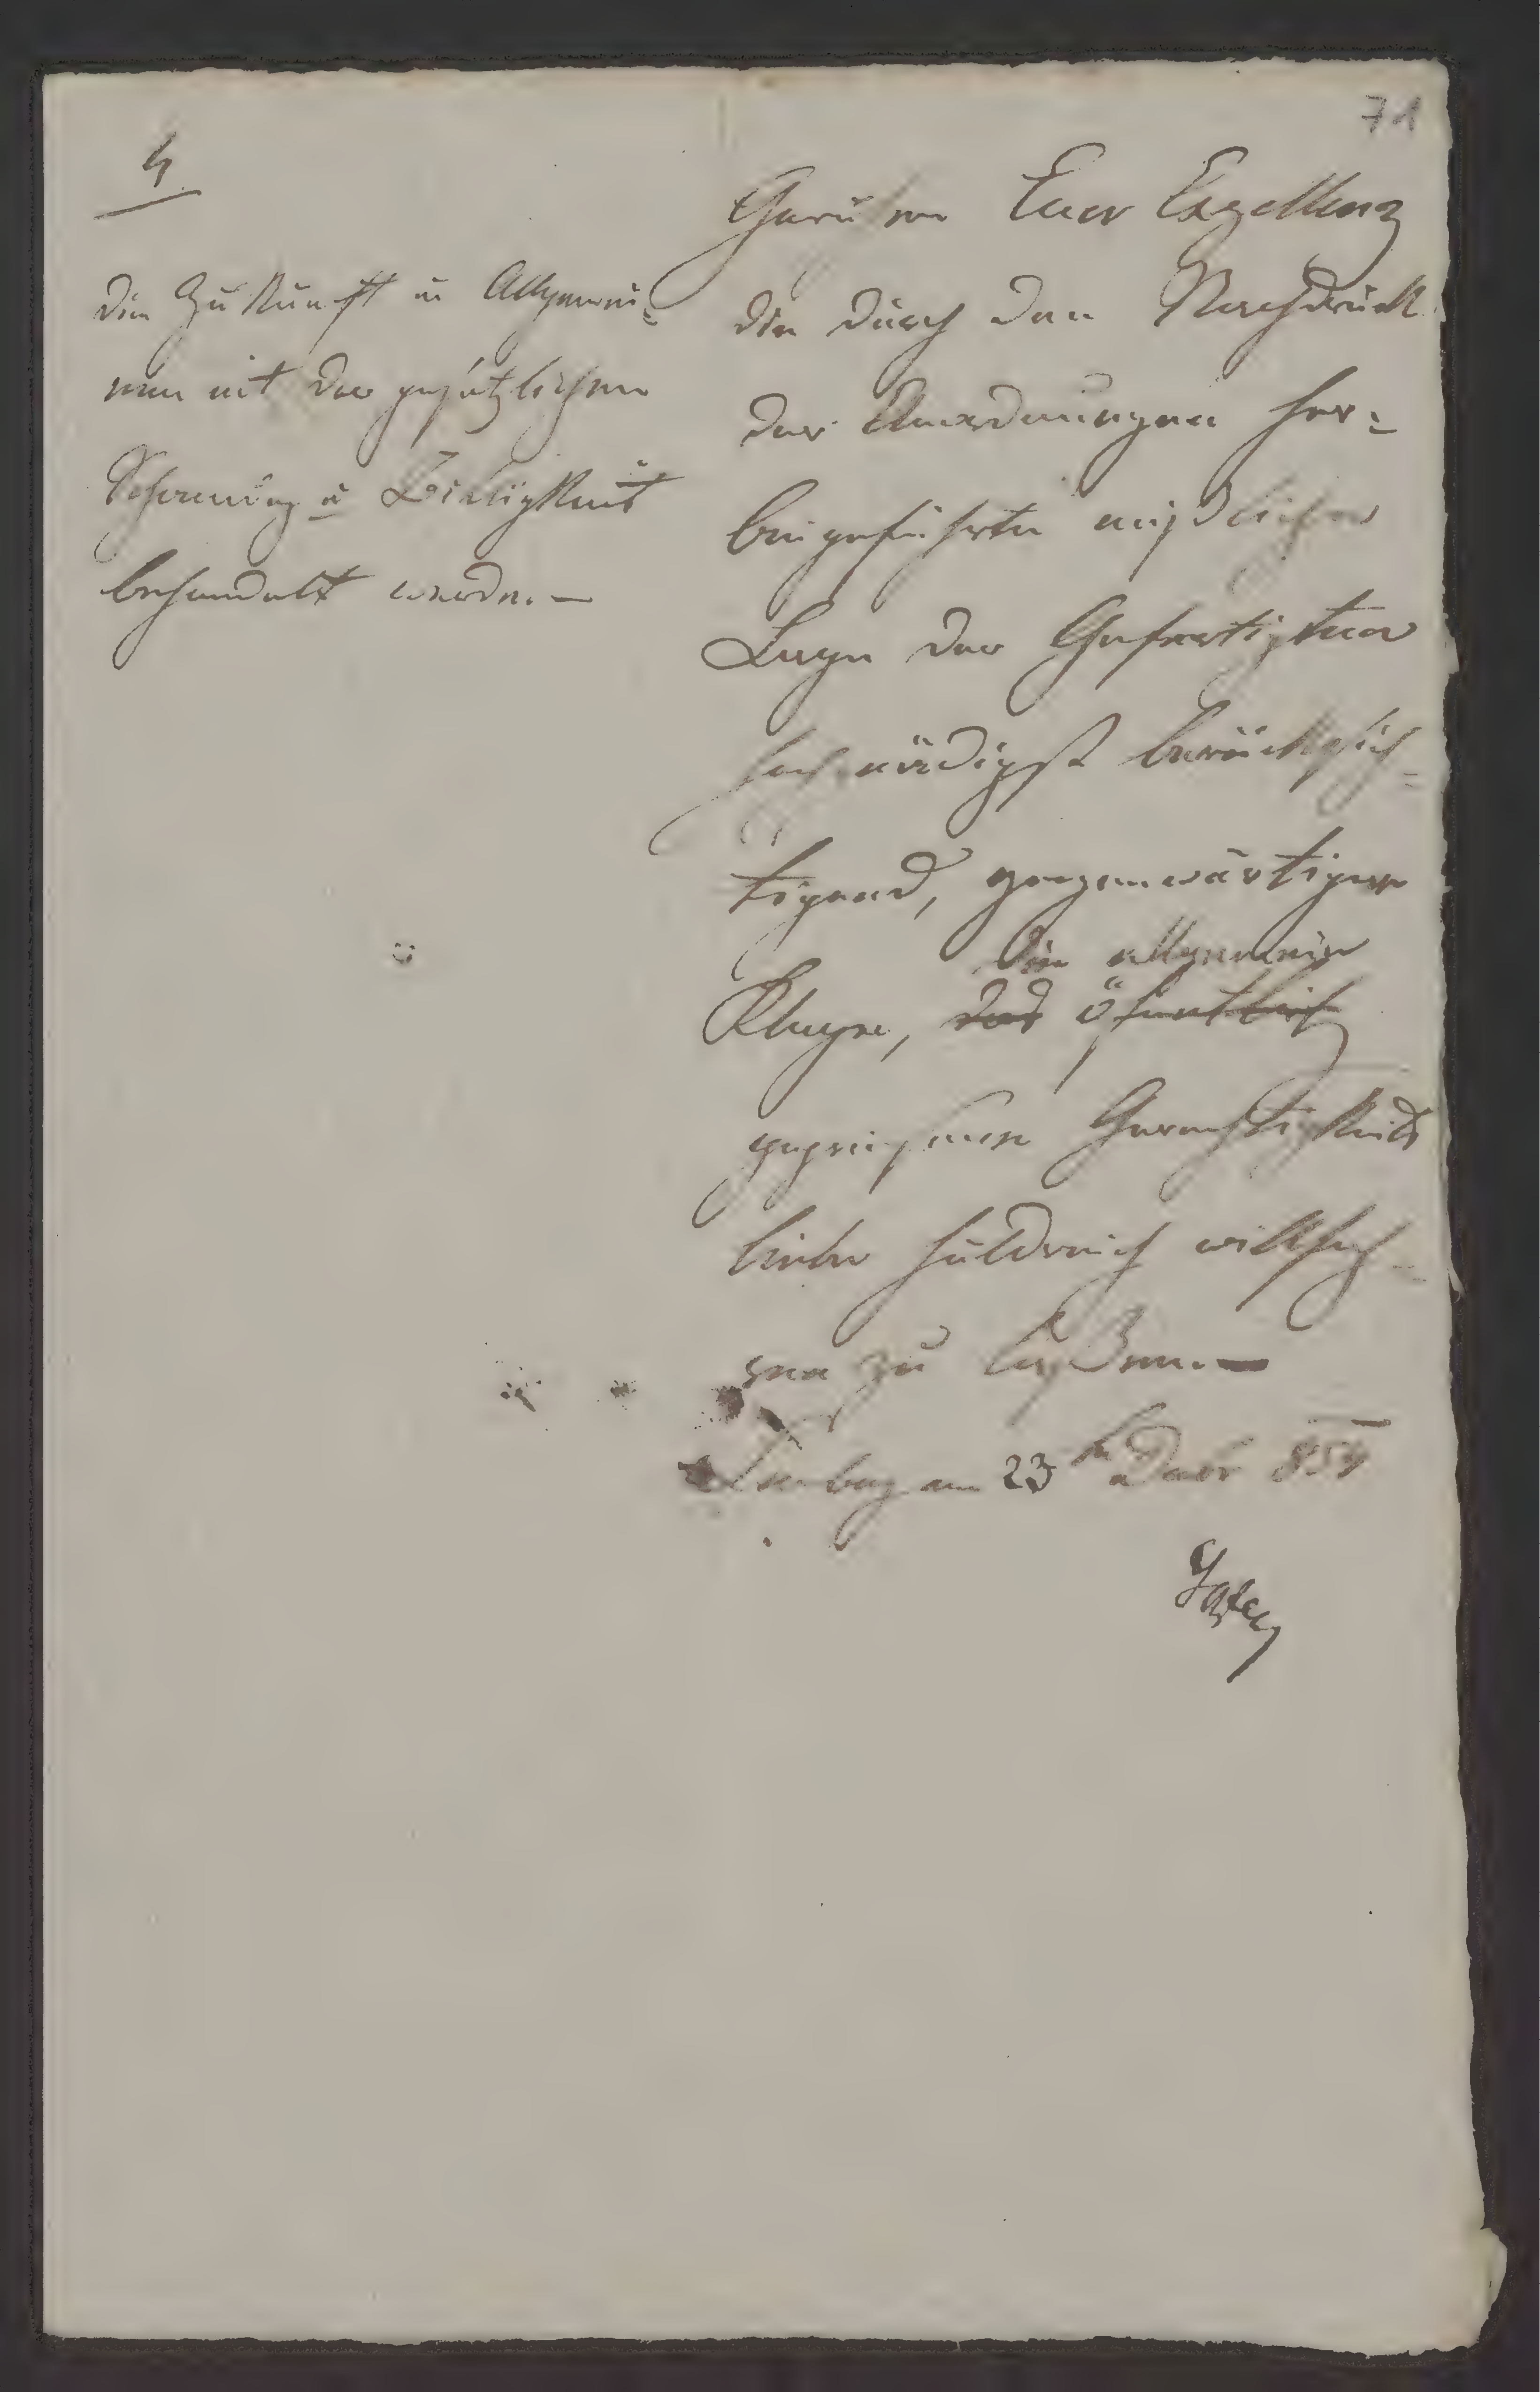 71
4
die Zukunft im Allgemei=
nen mit der gesetzlichen
Schonung u Billigkeit
behandelt werde.—
Geruhen Euer Exzellenz
die durch den Nachdruck
der Anordnungen her=
beigeführte mißliche
Lage der Gefertigten
hochgnädigst berücksich=
tigend, gegenwärtiger
die allgemein
Klage, das öffentlich
gepriesene Gerechtigkeits
liebe huldreich willfah=
ren zu laßen.—
am 23 854